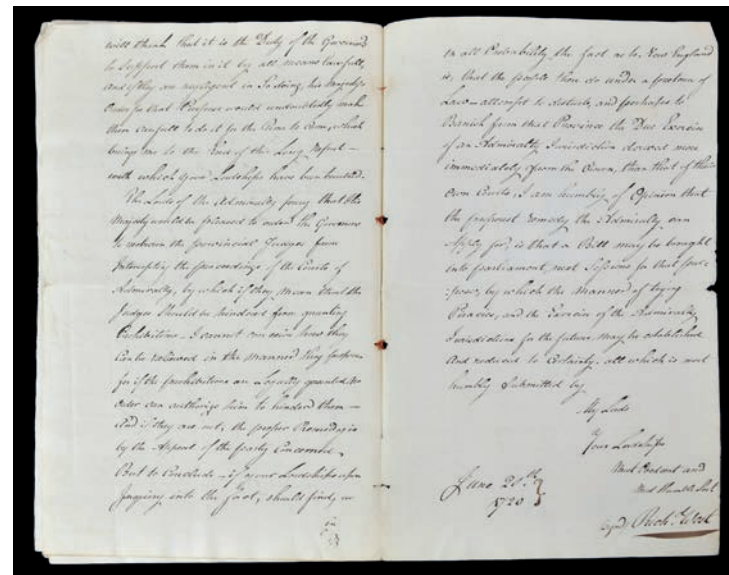 will think that it is the Duty of the Governors
to Support them in it by all means lawfull,
and if they are negligent in so doing, his Majestys
Orders for that Purpose would undoubtedly make
them carefull to do it for the time to come, which
brings me to the End of this Long Report –
with which your Lordships have been troubled.
The Lords of the Admiralty pray that his
Majesty would be pleased to order the Governors
to restrain the provincial Judges from
Interrupting the proceedings of the Courts of
Admiralty, by which if they mean that the
Judges should be hindered from granting
Prohibitions. I cannot conceive how they
Can be relieved in the manner they propose
for if the prohibitions are Legally granted no
order can authorize him to hinder them –
And if they are not, the proper Remedy is
by the Appeal of the party Concerned.
But to Conclude – if your Lordships upon
Inquiry into the fact, should find, as
in all Probability the fact is to New England
is, that the people there do under a pretence of
Law – attempt to disturb, and perhaps to
Banish from that Province the Due Exercise
of an Admiralty Jurisdiction derived more
immediately from the Crown, than that of their
own Courts, I am humbly of Opinion that
the properest remedy the Admiralty can
Apply for, is that a Bill may be brought
into parliament next Sessions for that pur-
:pose, by which the Manner of trying
Pirates, and the Exercise of the Admiralty
Jurisdictions for the future may be established
And reduced to Certainty. all which is most
humbly Submitted by
My Lords
Your Lordships
Most Obedient and
Most Humble Servt
June 20th
1720
Signd Richd West